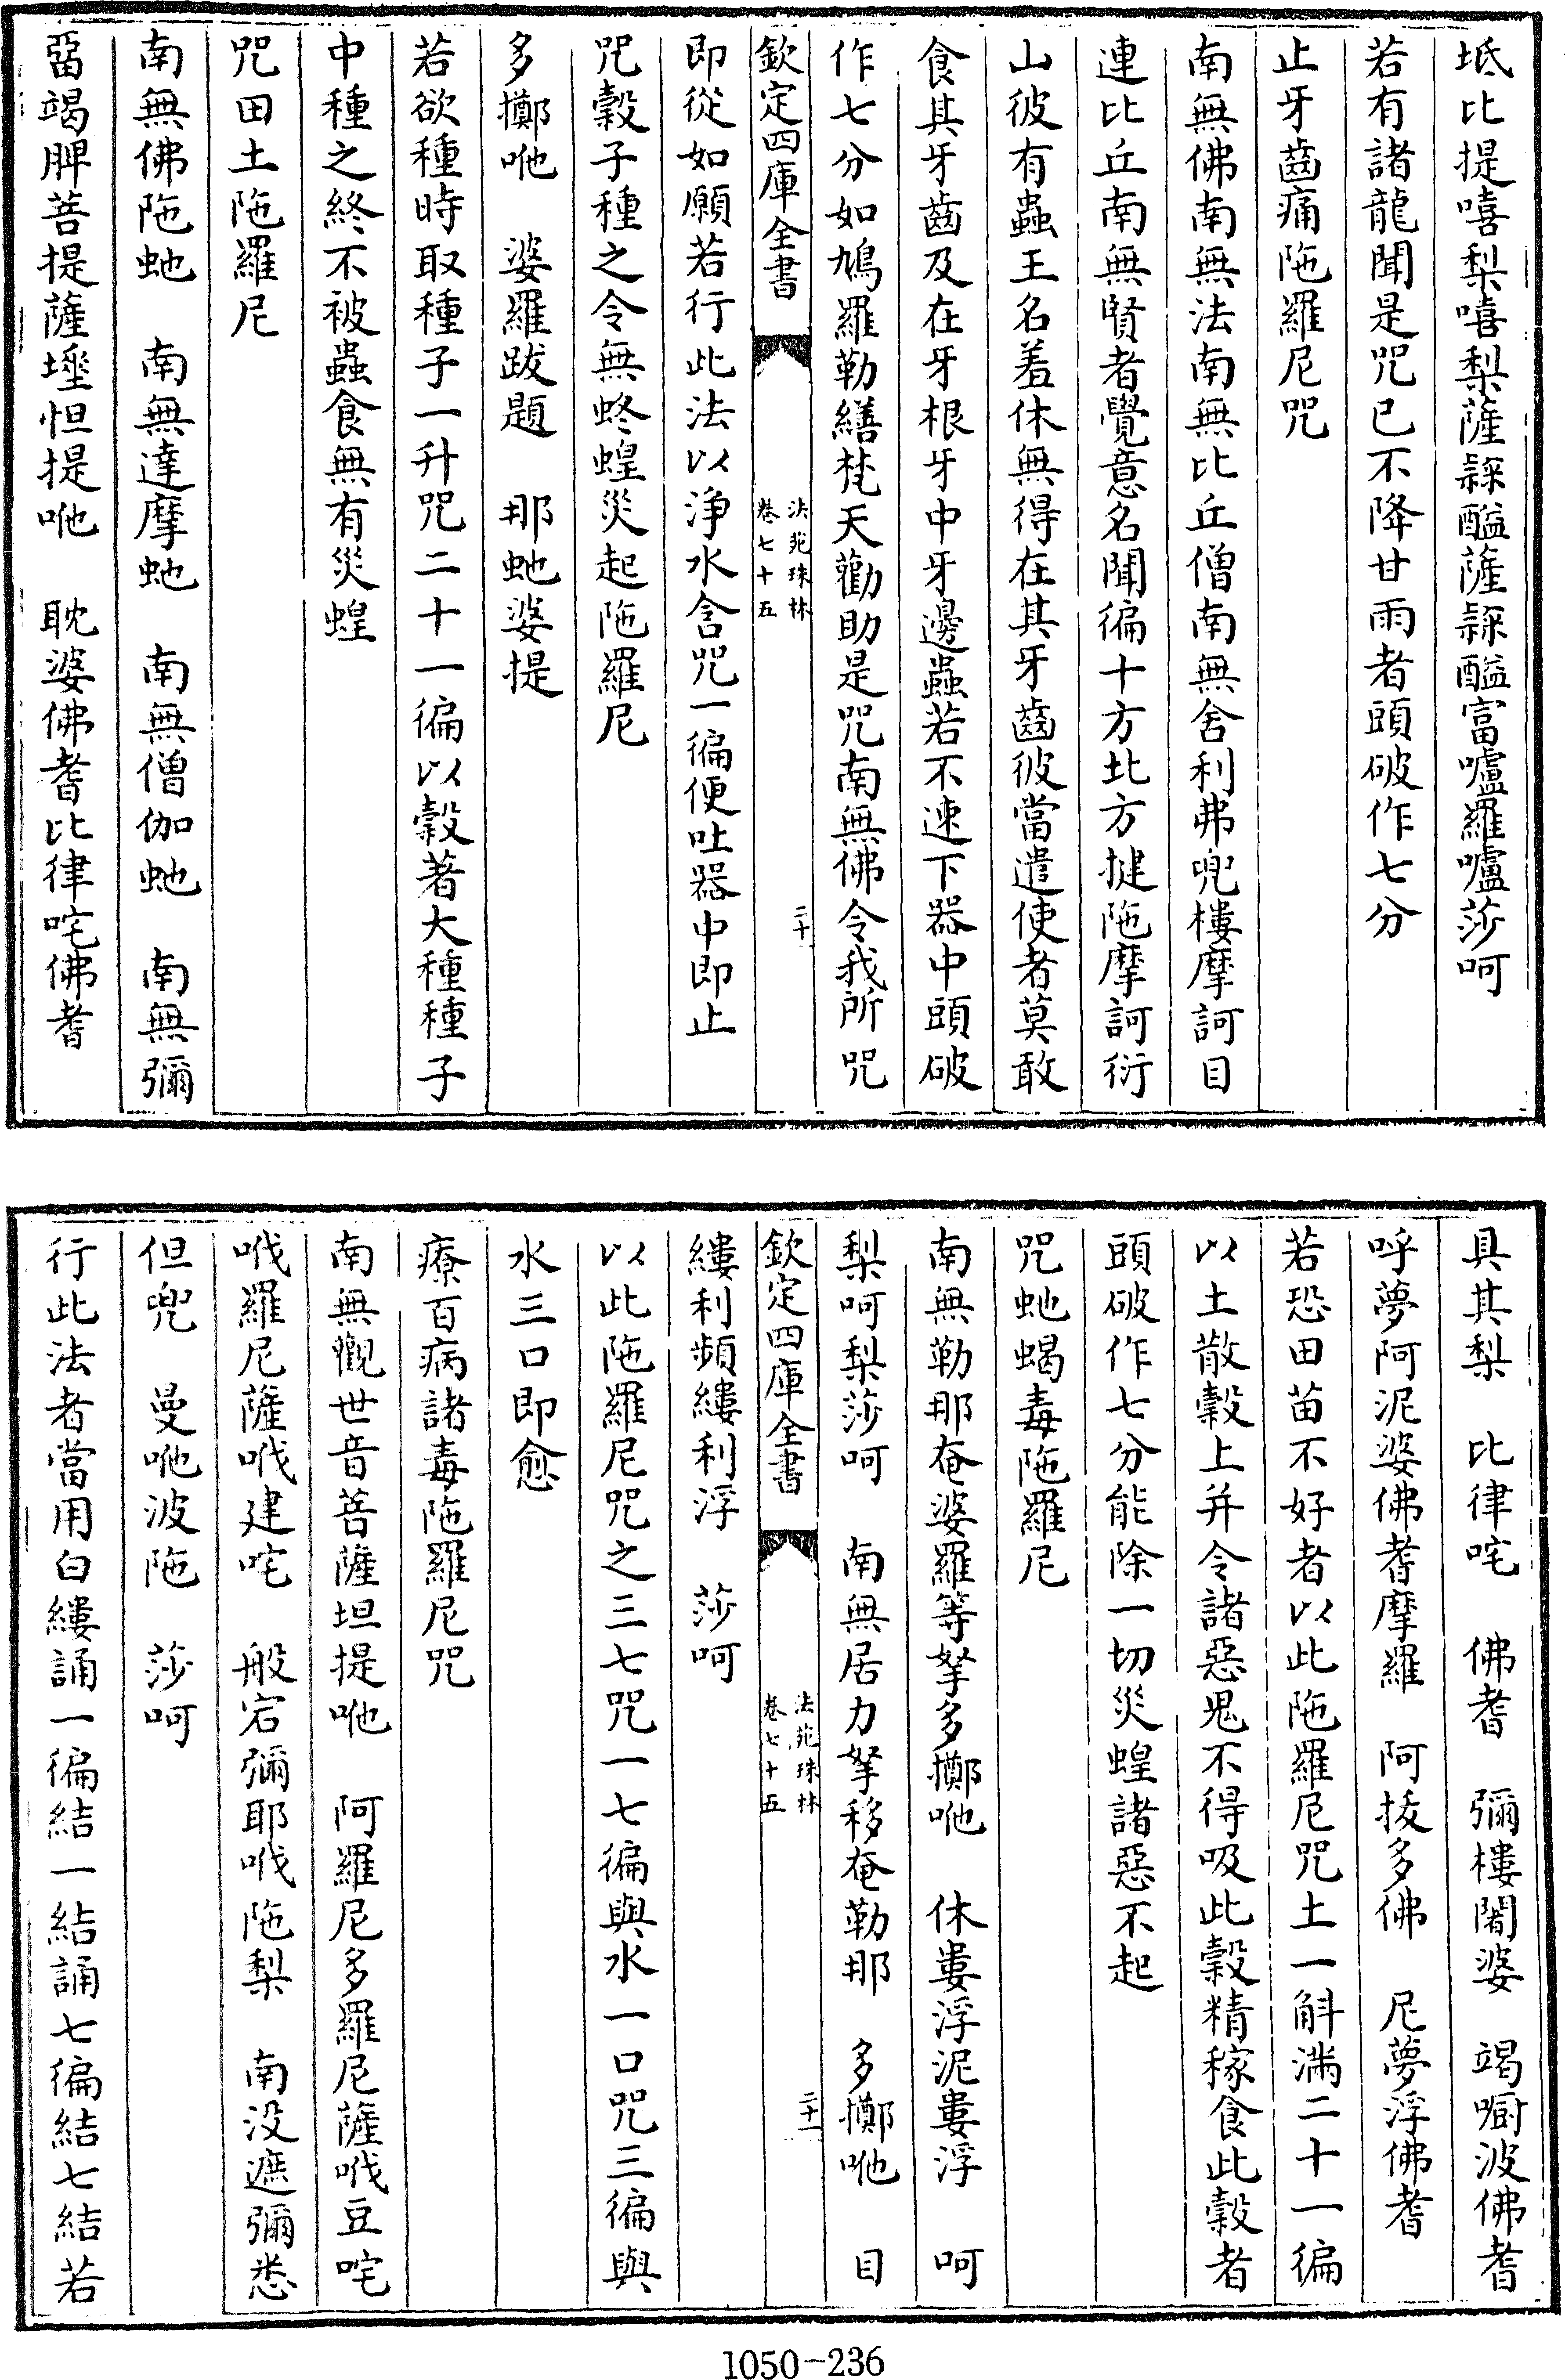 坻比提嘻梨嘻梨薩䤈醯薩䤈醯富嚧羅嚧莎呵
若有諸龍聞是咒已不降甘雨者頭破作七分
止牙齒痛陁羅尼咒
南無佛南無法南無比丘僧南無舍利弗兜樓摩訶目
連比丘南無賢者覺意名聞徧十方北方揵陁摩訶衍
山彼有蟲王名羞休無得在其牙齒彼當遣使者莫敢
食其牙齒及在牙根牙中牙邊蟲若不速下器中頭破
作七分如鳩羅勒繕梵天勸助是咒南無佛令我所咒
欽定四庫全書
法苑珠林
卷七十五
二十
即從如願若行此法以淨水含咒一徧便吐器中即止
咒穀子種之令無蟓蝗災起陁羅尼
多擲咃　婆羅跋題　那虵婆提
若欲種時取種子一升咒二十一徧以穀著大種種子
中種之終不被蟲食無有災蝗
咒田土陁羅尼
南無佛陁虵　南無達摩虵　南無僧伽虵　南無彌
㽬竭脾菩提薩埵怛提咃　耽婆佛耆比律咤佛耆
具其梨　比律咤　佛耆　彌樓闍婆　竭嚼波佛耆
呼夢阿泥婆佛耆摩羅　阿拔多佛　尼夢浮佛耆
若恐田苗不好者以此陁羅尼咒土一斛滿二十一徧
以土散穀上并令諸惡鬼不得吸此穀精稼食此穀者
頭破作七分能除一切災蝗諸惡不起
咒虵蝎毒陁羅尼
南無勒那奄婆羅等拏多擲咃　休婁浮泥婁浮　呵
梨呵梨莎呵　南無居力拏移奄勒那　多擲咃　目
欽定四庫全書
法苑珠林
卷七十五
二十一
縷利頻縷利浮　莎呵
以此陁羅尼咒之三七咒一七徧與水一口咒三徧與
水三口即愈
療百病諸毒陁羅尼咒
南無觀世音菩薩坦提咃　阿羅尼多羅尼薩㖑豆咤
㖑羅尼薩㖑建咤　般宕彌耶㖑陁梨　南没遮彌悉
但兜　曼咃波陁　莎呵
行此法者當用白縷誦一徧結一結誦七徧結七結若
1050-236